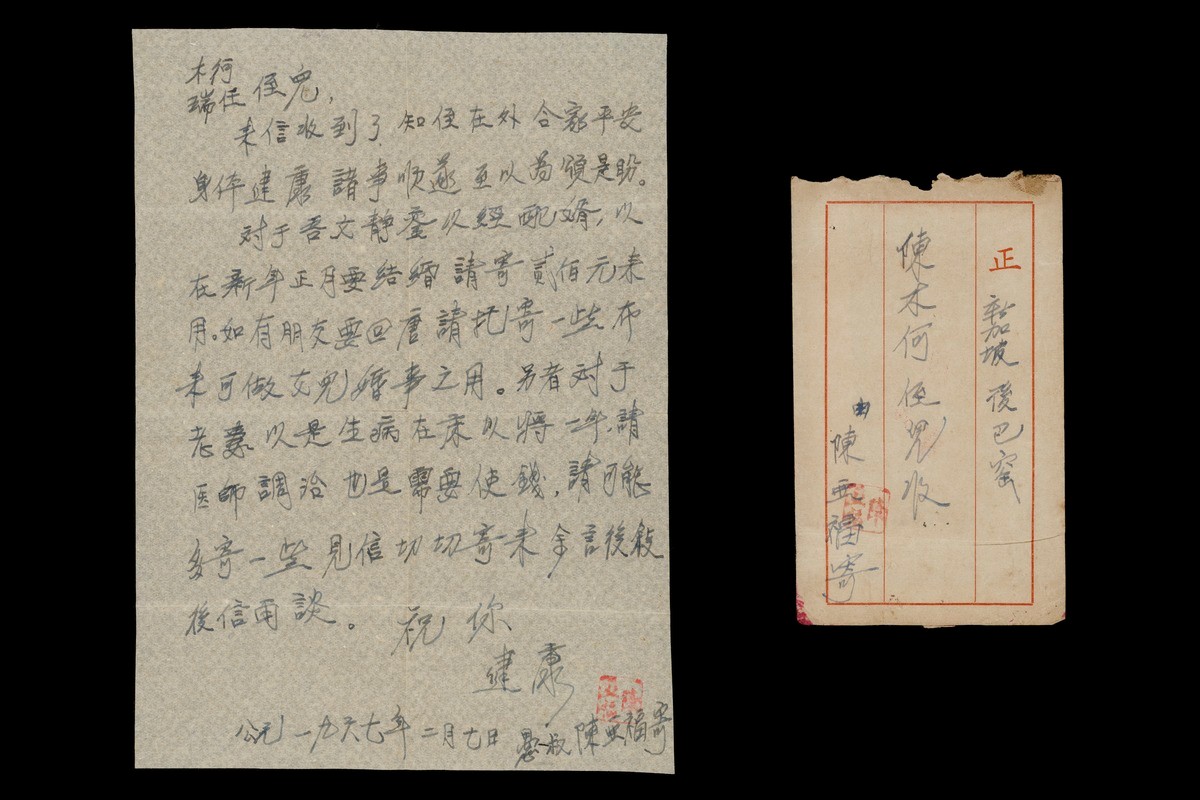 木何
瑞任 侄兒，
来信收到了，知侄在外合家平安
身体建康諸事順遂至以為頌是盼。
对于吾文靜鑾以經配婿，以
在新年正月要结婚請寄貳佰元来
用。如有朋友要回唐請托寄一些布
来可做女兒婚事之用。另者对于
老 以是生病在床以將一年，請
医師調治也是需要使錢，請可能
多寄一些見信切切寄来余言後敍
後信再談。 祝你
建康
公元一九六七年二月七日 愚叔陳亜福寄
正
新加坡後巴窰
陳木何侄兒收
由陳亜福寄